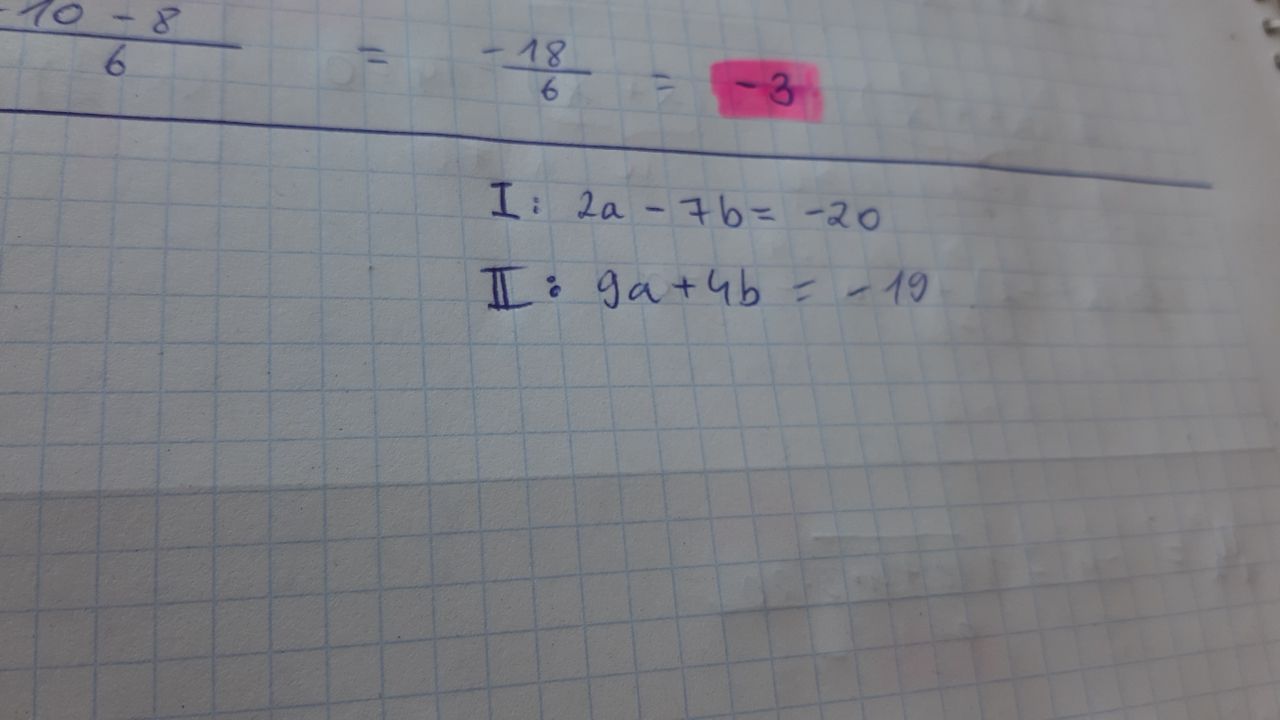 -10 - 8 / 6 = -18 / 6 = -3
I: 2a - 7b = -20
II: 9a + 4b = -19